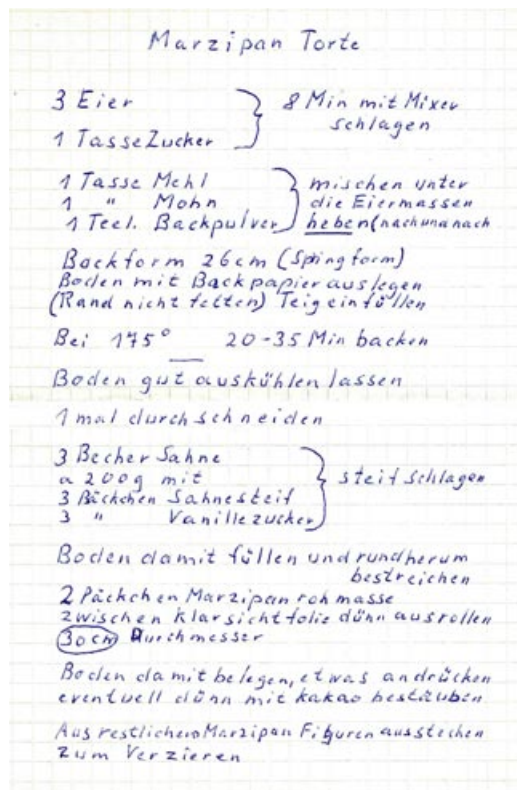 Marzipan Torte
3 Eier
1 Tasse Zucker
8 Min mit Mixer
schlagen
1 Tasse Mehl
1 " Mohn
1 Teel. Backpulver
mischen unter
die Eiermassen
heben (nach und nach
Backform 26cm (Springform)
Boden mit Backpapier auslegen
(Rand nicht fetten) Teig einfüllen
Bei 175° 20-35 Min backen
Boden gut auskühlen lassen
1 mal durchschneiden
3 Becher Sahne
a 200g mit
3 Päckchen Sahnesteif
3 " Vanillezucker
steif schlagen
Boden damit füllen und rundherum
bestreichen
2 Päckchen Marzipanrohmasse
zwischen Klarsichtfolie dünn ausrollen
30cm Durchmesser
Boden damit belegen, etwas andrücken
eventuell dünn mit Kakao bestäuben
Aus restlichem Marzipan Figuren ausstechen
zum Verzieren